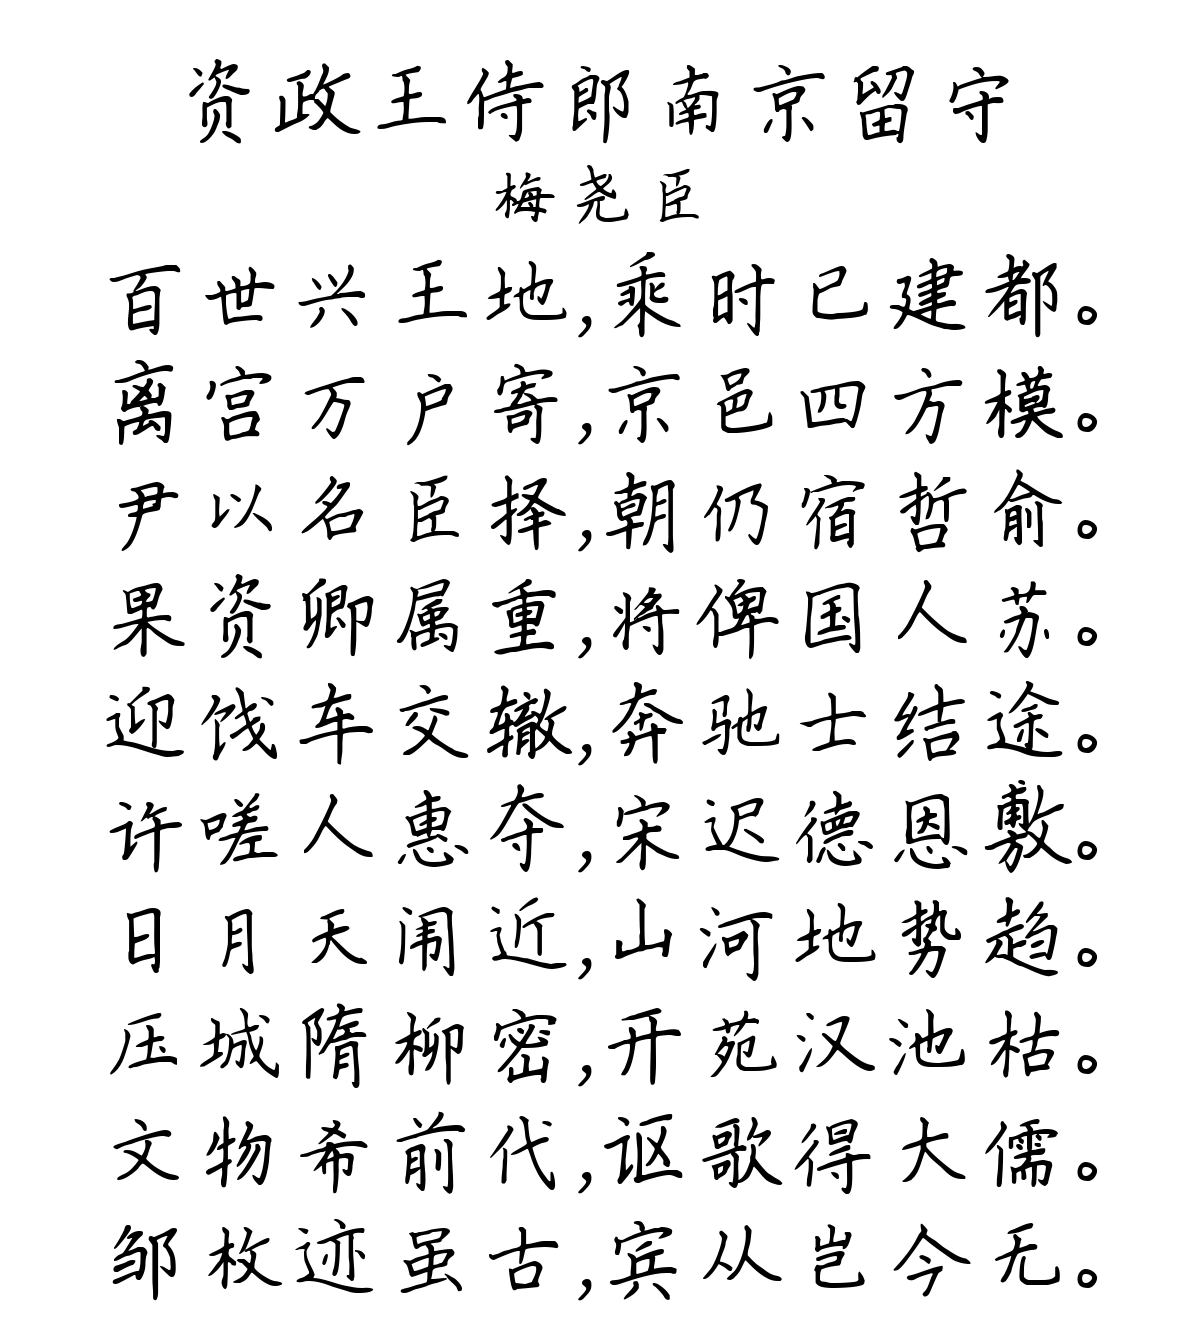 资政王侍郎南京留守
梅尧臣
百世兴王地,乘时已建都。
离宫万户寄,京邑四方模。
尹以名臣择,朝仍宿哲俞。
果资卿属重,将俾国人苏。
迎饯车交辙,奔驰士结途。
许嗟人惠夺,宋迟德恩敷。
日月天闱近,山河地势趋。
压城隋柳密,开苑汉池枯。
文物希前代,讴歌得大儒。
邹枚迹虽古,宾从岂今无。